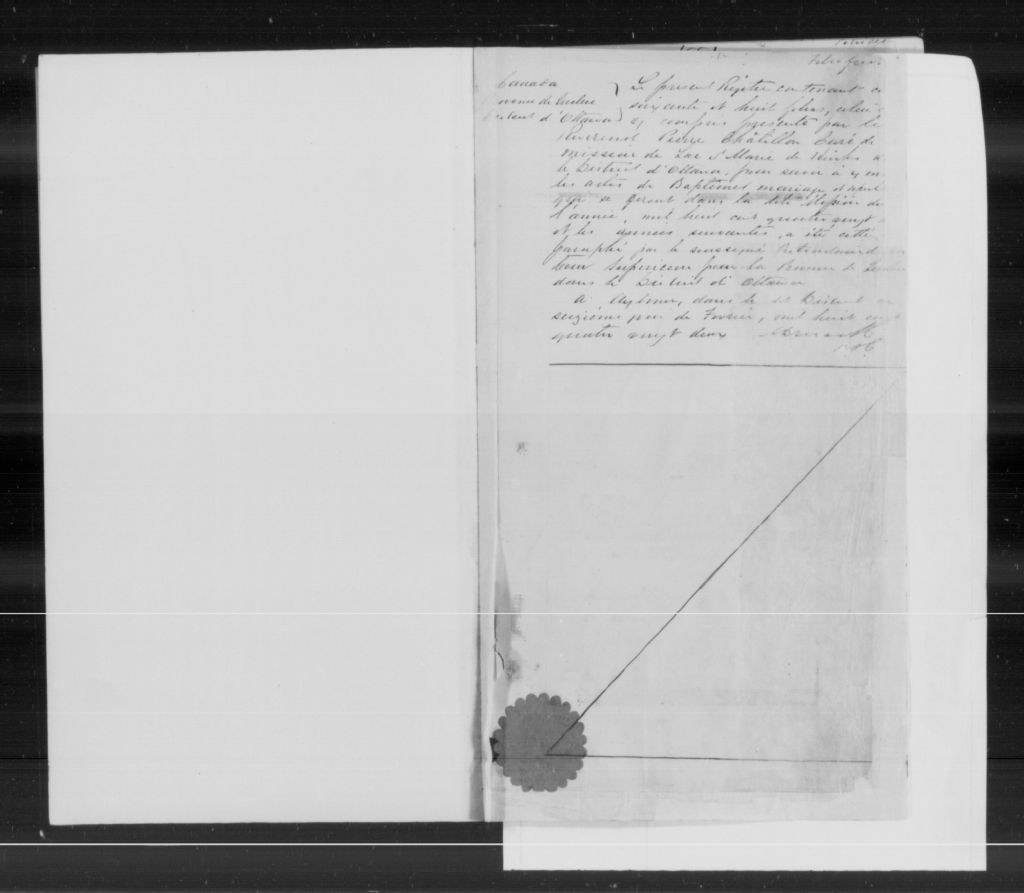 Canada
Province de Quebec
District d'Ottawa
Le present Régistre contenant
soixante et huit folios, celui
ci compris presenté par le
Reverend Pierre Châtillon Curé de
Mission de Lac S<sup>te</sup> Marie de
le District d'Ottawa, pour servir à y en
les actes de Baptêmes mariage et
qui se feront dans la dite Mission
l'année, mil huit cent quatre vingt
et les années suivantes, a été
paraphé par le soussigné Protonotaire
Cour Supérieure pour la Province de
dans le District d'Ottawa
A Aylmer, dans le dit District
seizième jour de Fevrier, mil huit cent
quatre vingt deux